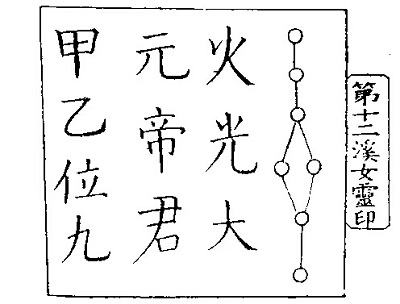 第十二溪女靈印
火光大
元帝君
甲乙位九